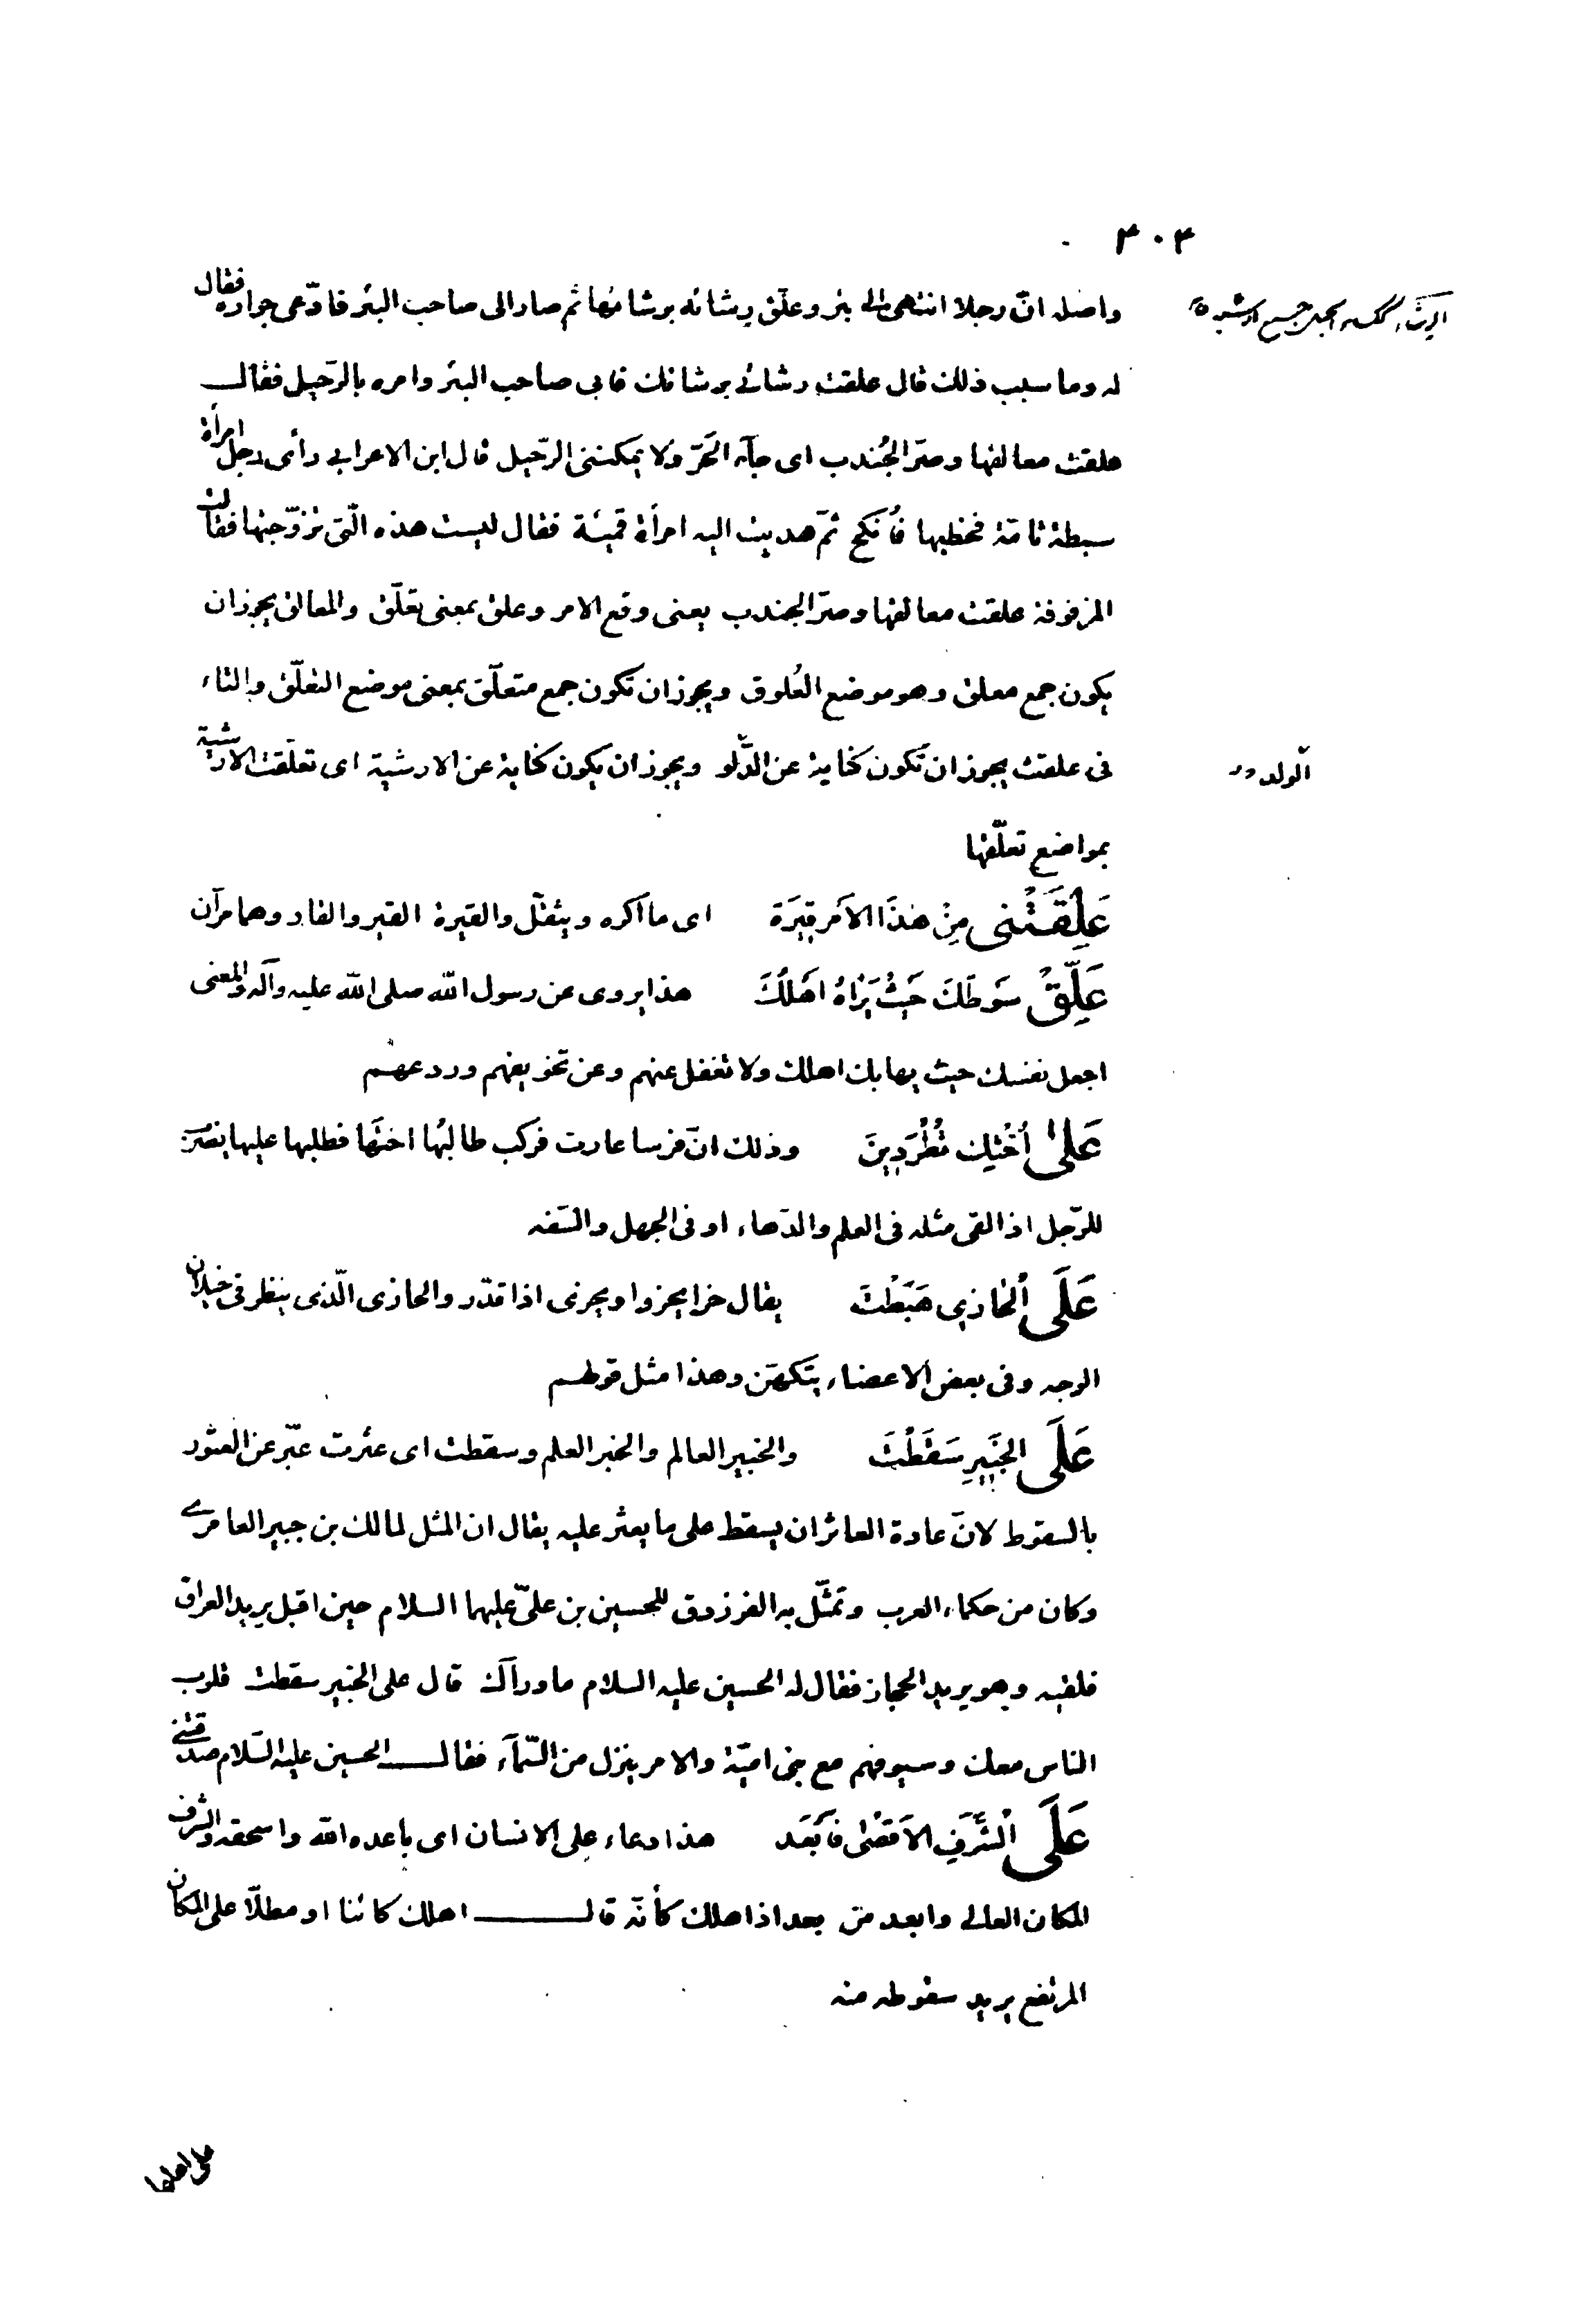 ٣٠٣
واصله انّ رجلا انتهى الى بئر وعلّق رشائه برشائها ثم صار الى صاحب البئر فادّعى جواره فقال
له وما سبب ذلك قال علقت رشائى برشائك فابى صاحب البئر وامره بالرّحيل فقال
علقت معالقها وصرّ الجُندب اى جآء الحَرّ ولا يمكننى الرّحيل قال ابن الاعرابى رأى رجل امرأة
سبطة تامّة فخطبها فأنكح ثمّ هديت اليه امرأة قميئة فقال ليست هذه الّتى تزوّجتها فقالت
المزفوفة علقت معالقها وصرّ الجندب يعنى وقع الامر وعلق بمعنى تعلّق والمعالق يجوز ان
يكون جمع معلق وهو موضع العُلوق ويجوز ان تكون جمع متعلّق بمعنى موضع التعلّق والتاء
فى علقت يجوز ان تكون كناية عن الدّلو ويجوز ان يكون كناية عن الارشية اى تعلّقت الارشية
الدلو
بمواضع تعلّقها
عَلِقَتْنى مِنْ هٰذَا الاَمرِ قِيَرَة اى ما اكره ويثقل والقيرة القير والقار وهما مرّان
عَلِّقْ سَوطَكَ حَيْثُ يَرَاهُ اَهلُكَ هذا يروى عن رسول الله صلى الله عليه وآله والمعنى
اجعل نفسك حيث يهابك اهلك ولا تغفل عنهم وعن تخويفهم وردعهم
عَلىٰ اُخْتِكِ تُطْرَدِينَ وذلك انّ فرسا عارت فركب طالبُها اختَها فطلبها عليها يضرَب
للرّجل اذا لقى مثله فى العلم والدّهاء او فى الجهل والسّفه
عَلَى اَلحَازِي هَبَطْتَ يقال حزا يحزوا ويحزى اذا قدّر والحازى الّذى ينظر فى خيلان
الوجه وفى بعض الاعضاء يتكهّن وهذا مثل قولهم
عَلَى الخَبيرِ سَقَطْتَ والخبير العالم والخبر العلم وسقطت اى عثرت عبّر عن العثور
بالسقوط لانّ عادة العاثر ان يسقط على ما يعثر عليه يقال ان المثل لمالك بن جبير العامرى
وكان من حكماء العرب وتمثّل به الفرزدق للحسين بن علىّ عليهما السلام حين اقبل يريد العراق
فلقيه وهو يريد الحجاز فقال له الحسين عليه السلام ما ورآك قال على الخبير سقطت قلوب
الناس معك وسيوفهم مع بنى اميّة والامر ينزل من السّمآء فقال الحسين عليه السّلام صدقتنى
عَلَى الْشَّرَفِ الاَقصٰى فَابْعَد هذا دعاء على الانسان اى باعده الله واسحقه والشرف
المكان العالى وابعد من بعد اذا هلك كأنّه قال اهلك كائنا او مطلّا على المكان
المرتفع يريد سقوطه منه
على اهلها